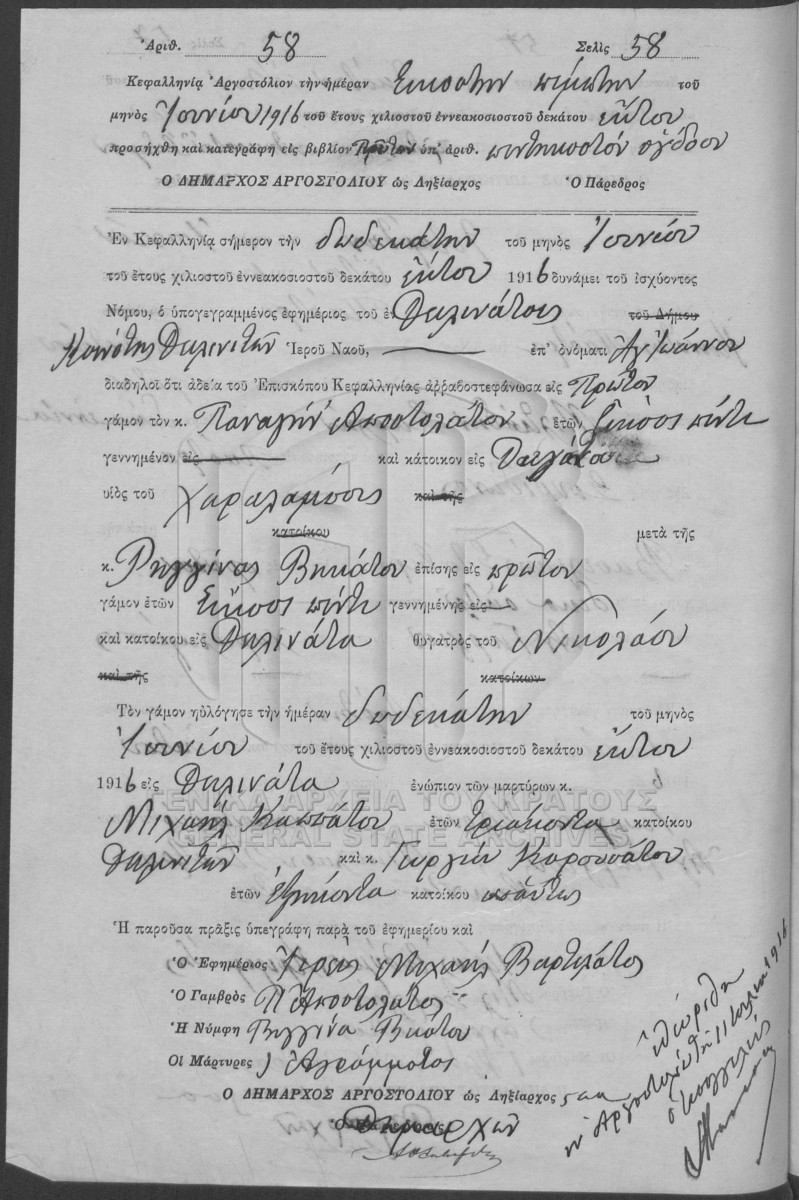 Ἀριθ. 58 Σελὶς 58
Κεφαλληνίᾳ Ἀργοστόλιον τὴν ἡμέραν Εικοστην πέμπτην τοῦ
μηνὸς Ἰουνίου 1916 τοῦ ἔτους χιλιοστοῦ ἐννεακοσιοστοῦ δεκάτου ἕκτου
προσήχθη καὶ κατεγράφη εἰς βιβλίον Πρῶτον ὑπ' ἀριθ. πεντηκοστόν ὄγδοον
Ο ΔΗΜΑΡΧΟΣ ΑΡΓΟΣΤΟΛΙΟΥ ὡς Ληξίαρχος Ὁ Πάρεδρος
Ἐν Κεφαλληνίᾳ σήμερον τὴν δωδεκάτην τοῦ μηνὸς Ἰουνίου
τοῦ ἔτους χιλιοστοῦ ἐννεακοσιοστοῦ δεκάτου ἕκτου 1916 δυνάμει τοῦ ἰσχύοντος
Νόμου, ὁ ὑπογεγραμμένος ἐφημέριος τοῦ ἐν Φαλινάτοις τοῦ Δήμου
Ἱεροῦ Ναοῦ, ἐπ' ὀνόματι Ἁγ Ἰωάννου
διαδηλοῖ ὅτι ἀδείᾳ τοῦ Ἐπισκόπου Κεφαλληνίας ἀῤῥαβοστεφάνωσα εἰς Πρῶτον
γάμον τὸν κ. Παναγῆν Αποστολάτον ἐτῶν Εἴκοσι πέντε
γεννημένον εἰς καὶ κάτοικον εἰς
υἱὸς τοῦ Χαραλάμπους καὶ τῆς
κατοίκου μετὰ τῆς
κ. Ρεγγίνας Βικάτου ἐπίσης εἰς πρῶτον
γάμον ἐτῶν Εἴκοσι πέντε γεννημένης εἰς
καὶ κατοίκου εἰς Φαλινάτα θυγατρὸς τοῦ Νικολάου
καὶ τῆς κατοίκων
Τὸν γάμον ηὐλόγησε τὴν ἡμέραν δωδεκάτην τοῦ μηνὸς
Ἰουνίου τοῦ ἔτους χιλιοστοῦ ἐννεακοσιοστοῦ δεκάτου ἕκτου
1916 εἰς Φαλινάτα ἐνώπιον τῶν μαρτύρων κ.
ΓΕΝΙΚΑ ΑΡΧΕΙΑ ΤΟΥ ΚΡΑΤΟΥΣ
Μιχαήλ Καππάτου ἐτῶν τριάκοντα κατοίκου
GENERAL STATE ARCHIVES
καὶ κ. Γεωργίου Καρουσάτου
ἐτῶν ἑξήκοντα κατοίκου ωσαύτως
Ἡ παροῦσα πρᾶξις ὑπεγράφη παρὰ τοῦ ἐφημερίου καὶ
Ὁ Ἐφημέριος Ἱερεύς Μιχαήλ Βαρτελάτος
Ὁ Γαμβρὸς Π Αποστολατος
Ἡ Νύμφη Ρεγγίνα Βικάτου
Οἱ Μάρτυρες Αγράμματος
Ο ΔΗΜΑΡΧΟΣ ΑΡΓΟΣΤΟΛΙΟΥ ὡς Ληξίαρχος
Δημαρχῶν
Ἐθεωρήθη
ἐν Ἀργοστολίῳ τῇ 11 1916